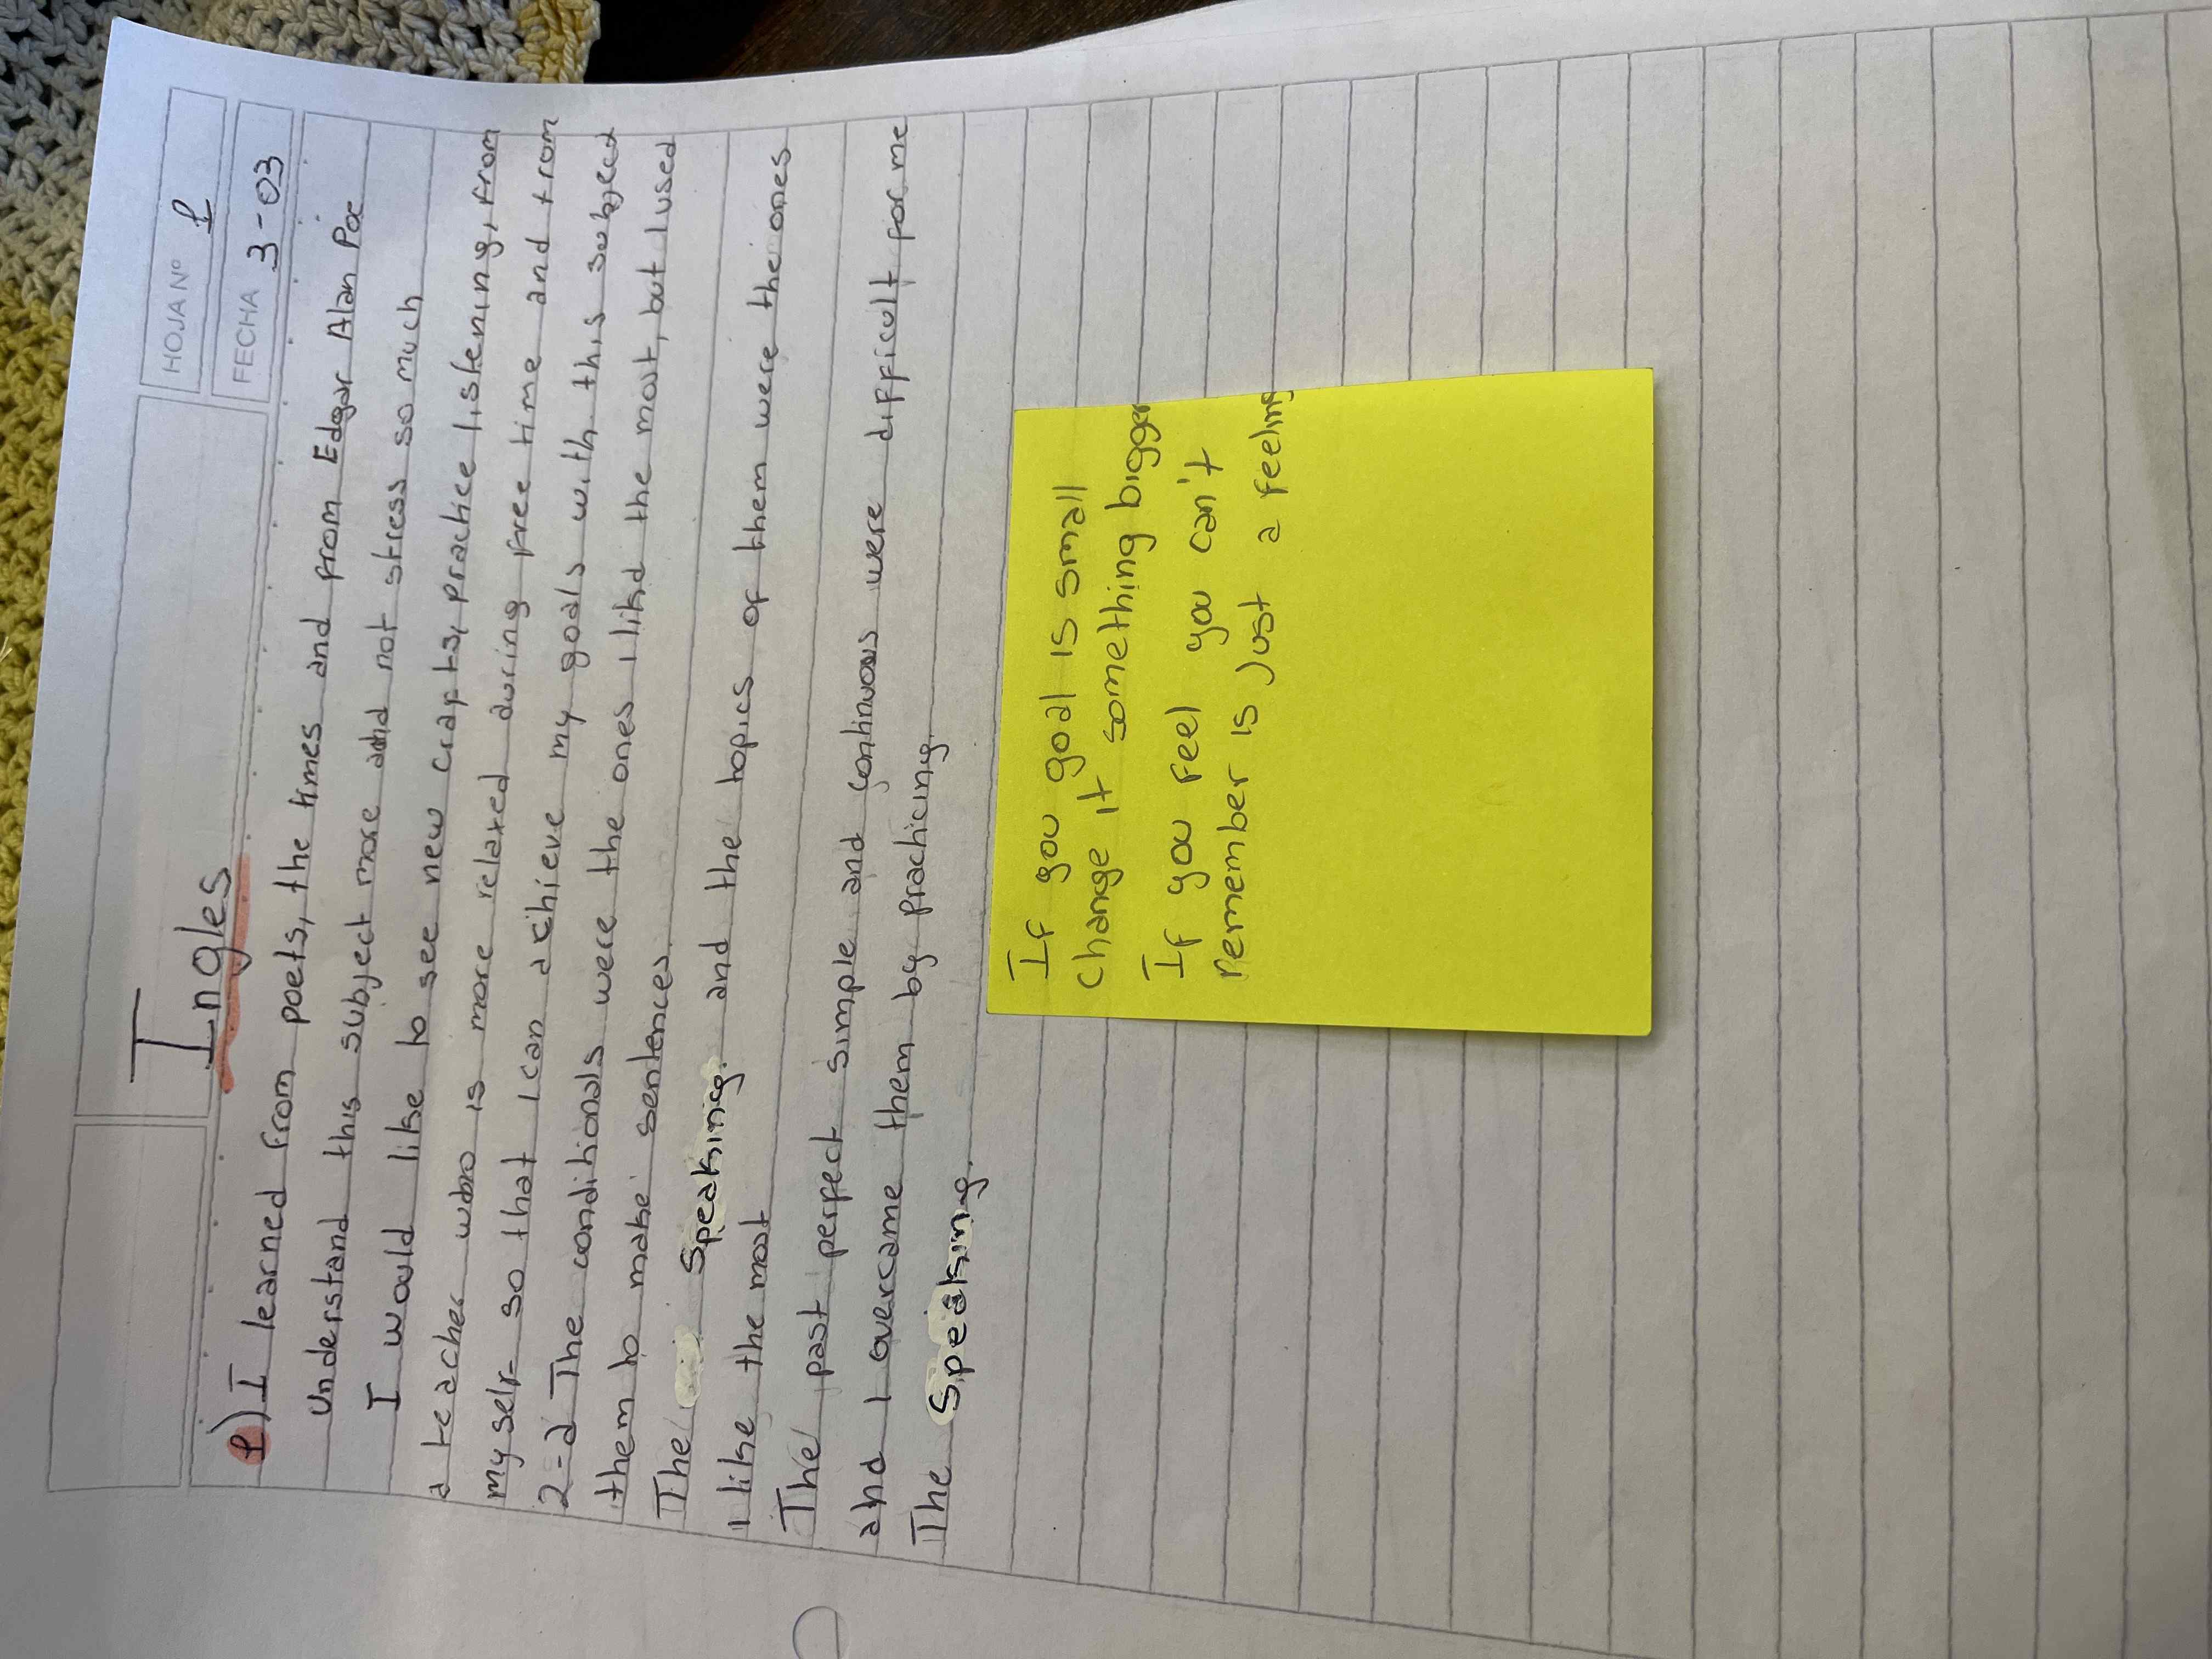 HOJA Nº 1
FECHA 3-03
Ingles
1) I learned from poets, the times and from Edgar Alan Poe
understand this subject more and not stress so much
I would like to see new crafts, practice listening, from
a teacher who is more relaxed during free time and from
my self so that I can achieve my goals with this subject
2-a The conditionals were the ones I likd the most, but I used
them to make sentences.
The speaking. and the topics of them were the ones
I like the most
The past perfect simple and continuous were difficult for me
and I overcame them by practicing.
The speaking.
If you goal is small
change it something bigger
If you feel you can't
remember is just a feeling